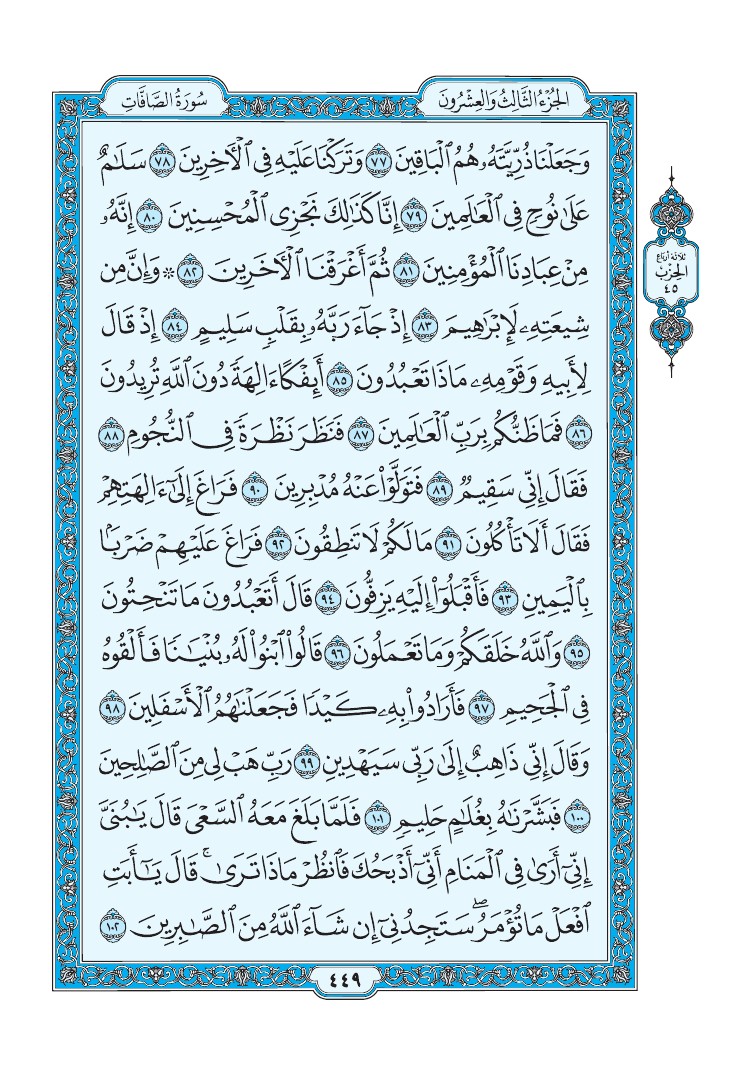 الجُزْءُ الثَّالِثُ وَالعِشْرُونَ
سُورَةُ الصَّافَّاتِ
وَجَعَلْنَا ذُرِّيَّتَهُۥ هُمُ ٱلْبَاقِينَ ٧٧ وَتَرَكْنَا عَلَيْهِ فِى ٱلْأَخِرِينَ ٧٨ سَلَٰمٌ
عَلَىٰ نُوحٍ فِى ٱلْعَٰلَمِينَ ٧٩ إِنَّا كَذَٰلِكَ نَجْزِى ٱلْمُحْسِنِينَ ٨٠ إِنَّهُۥ
مِنْ عِبَادِنَا ٱلْمُؤْمِنِينَ ٨١ ثُمَّ أَغْرَقْنَا ٱلْأَخَرِينَ ٨٢ ۞ وَإِنَّ مِن
شِيعَتِهِۦ لَإِبْرَٰهِيمَ ٨٣ إِذْ جَآءَ رَبَّهُۥ بِقَلْبٍ سَلِيمٍ ٨٤ إِذْ قَالَ
لِأَبِيهِ وَقَوْمِهِۦ مَاذَا تَعْبُدُونَ ٨٥ أَئِفْكًا ءَالِهَةً دُونَ ٱللَّهِ تُرِيدُونَ
٨٦ فَمَا ظَنُّكُم بِرَبِّ ٱلْعَٰلَمِينَ ٨٧ فَنَظَرَ نَظْرَةً فِى ٱلنُّجُومِ ٨٨
فَقَالَ إِنِّى سَقِيمٌ ٨٩ فَتَوَلَّوْا۟ عَنْهُ مُدْبِرِينَ ٩٠ فَرَاغَ إِلَىٰٓ ءَالِهَتِهِمْ
فَقَالَ أَلَا تَأْكُلُونَ ٩١ مَا لَكُمْ لَا تَنطِقُونَ ٩٢ فَرَاغَ عَلَيْهِمْ ضَرْبًۢا
بِٱلْيَمِينِ ٩٣ فَأَقْبَلُوٓا۟ إِلَيْهِ يَزِفُّونَ ٩٤ قَالَ أَتَعْبُدُونَ مَا تَنْحِتُونَ
٩٥ وَٱللَّهُ خَلَقَكُمْ وَمَا تَعْمَلُونَ ٩٦ قَالُوا۟ ٱبْنُوا۟ لَهُۥ بُنْيَٰنًا فَأَلْقُوهُ
فِى ٱلْجَحِيمِ ٩٧ فَأَرَادُوا۟ بِهِۦ كَيْدًا فَجَعَلْنَٰهُمُ ٱلْأَسْفَلِينَ ٩٨
وَقَالَ إِنِّى ذَاهِبٌ إِلَىٰ رَبِّى سَيَهْدِينِ ٩٩ رَبِّ هَبْ لِى مِنَ ٱلصَّٰلِحِينَ
١٠٠ فَبَشَّرْنَٰهُ بِغُلَٰمٍ حَلِيمٍ ١٠١ فَلَمَّا بَلَغَ مَعَهُ ٱلسَّعْىَ قَالَ يَٰبُنَىَّ
إِنِّىٓ أَرَىٰ فِى ٱلْمَنَامِ أَنِّىٓ أَذْبَحُكَ فَٱنظُرْ مَاذَا تَرَىٰ ۚ قَالَ يَٰٓأَبَتِ
ٱفْعَلْ مَا تُؤْمَرُ ۖ سَتَجِدُنِىٓ إِن شَآءَ ٱللَّهُ مِنَ ٱلصَّٰبِرِينَ ١٠٢
ثلاثة أرباع
الحزب
٤٥
٤٤٩